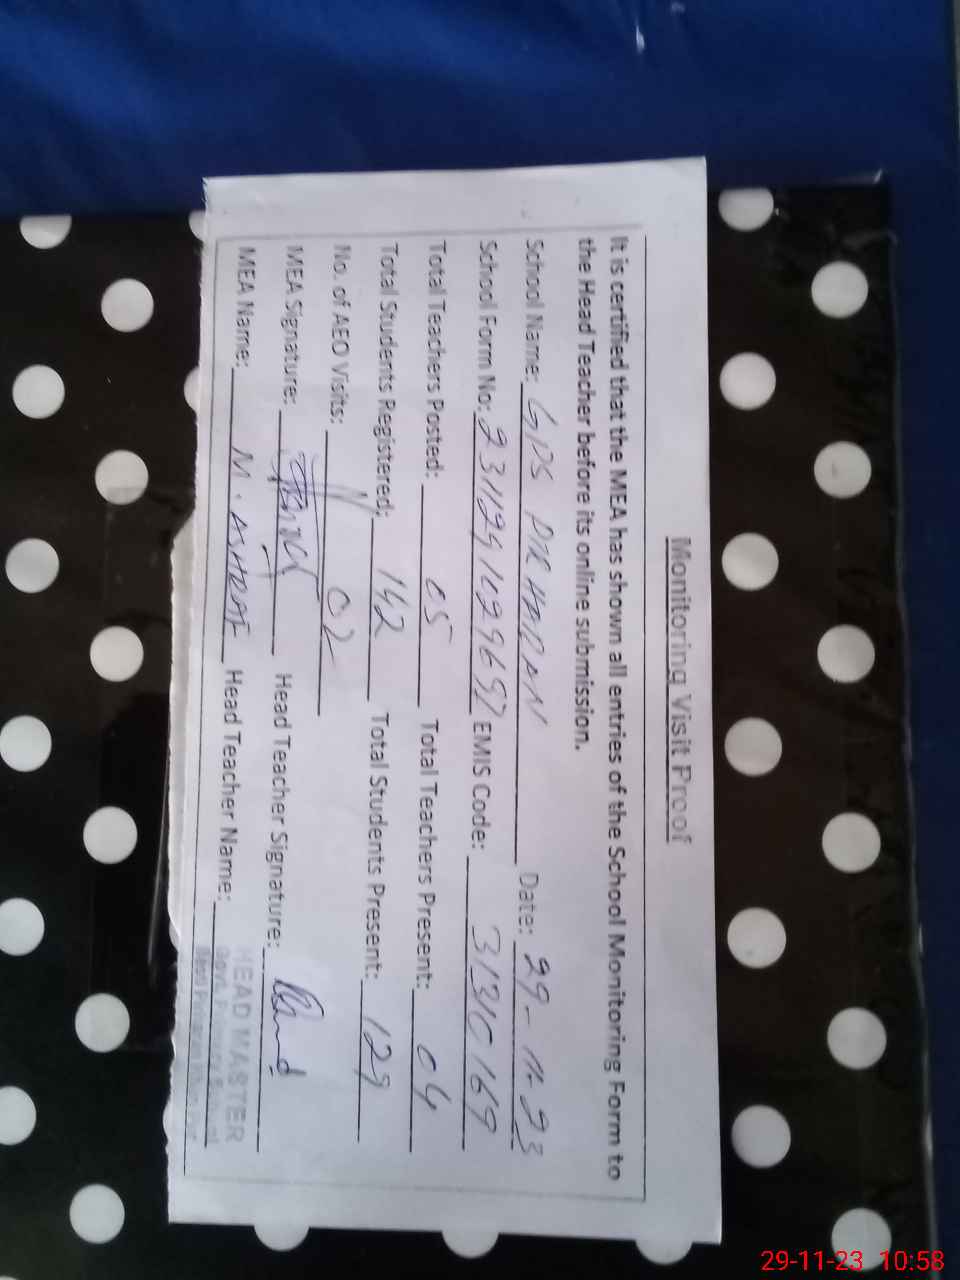 Monitoring Visit Proof
It is certified that the MEA has shown all entries of the School Monitoring Form to
the Head Teacher before its online submission.
School Name: GPS Date: 29-11-23
School Form No: EMIS Code: 31310169
Total Teachers Posted: 05 Total Teachers Present: 04
Total Students Registered: 142 Total Students Present: 129
No. of AEO Visits: 02
MEA Signature: Head Teacher Signature:
MEA Name: M. ASHRAF Head Teacher Name:
HEAD MASTER
Govt. Primary School
29-11-23 10:58